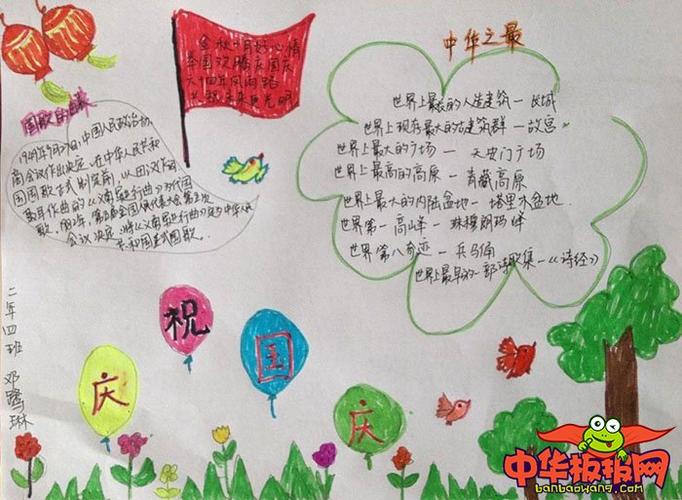 金秋十月好心情
举国欢腾庆国庆
六十四年风雨路
展望未来更光明
中华之最
世界上最长的人生建筑—长城
世界上现存最大的古建筑群—故宫
世界上最大的广场—天安门广场
世界上最高的高原—青藏高原
世界上最大的内陆盆地—塔里木盆地
世界第一高峰—珠穆朗玛峰
世界第八奇迹—兵马俑
世界上最早的一部诗歌集—《诗经》
国歌的由来
1949年9月27日,中国人民政治协
商会议作出决定,在中华人民共和
国国歌正式制定前,以田汉作词
聂耳作曲的《义勇军进行曲》为代国
歌。
会议决定,将《义勇军进行曲》定为中华人民
共和国正式国歌.
二年四班 邓鹭琳
庆祝国庆
中华板报网
banbaowang.com